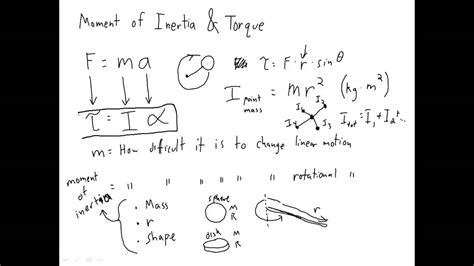 Moment of Inertia & Torque
F = ma
τ = F·r·sinθ
I point mass = mr² (kg·m²)
τ = I α
I₁ I₂ I₃ I₄
I tot = I₁ + I₂ + ...
m = How difficult it is to change linear motion
moment of inertia = " " " " " " " rotational "
· Mass
· r
· Shape
sphere M R
disk M R
r